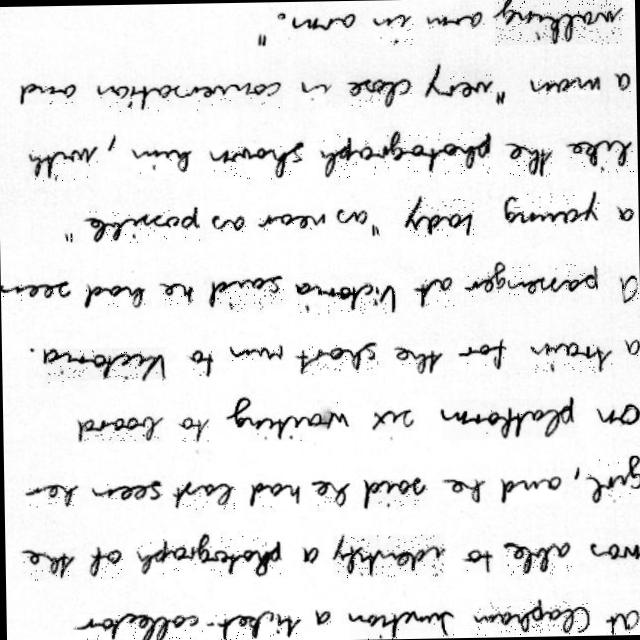 at Clapham Junction a ticket-collector
was able to identify a photograph of the
girl, and he said he had last seen her
on platform six waiting to board
a train for the short run to Victoria.
A passenger at Victoria said he had seen
a young lady "as near as possible"
like the photograph shown him, with
a man "very close in conversation and
walking arm in arm."